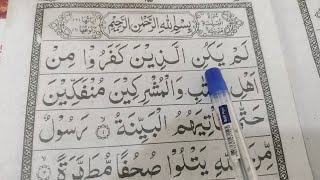 بِسْمِ اللهِ الرَّحْمٰنِ الرَّحِيْمِ
لَمْ يَكُنِ الَّذِيْنَ كَفَرُوْا مِنْ
اَهْلِ وَالْمُشْرِكِيْنَ مُنْفَكِّيْنَ
حَتّٰى تَاْتِيَهُمُ الْبَيِّنَةُ ۙ رَسُوْلٌ
مِّنَ اللهِ يَتْلُوْا صُحُفًا مُّطَهَّرَةً ۙ